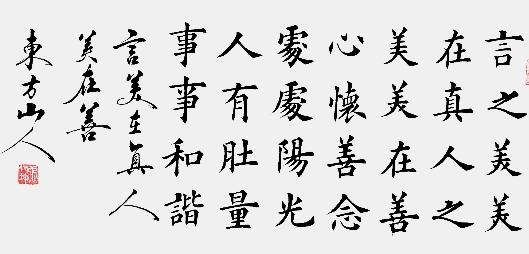 言之美美
在真人之
美美在善
心懷善念
處處陽光
人有肚量
事事和諧
言美在真人
美在善
東方山人